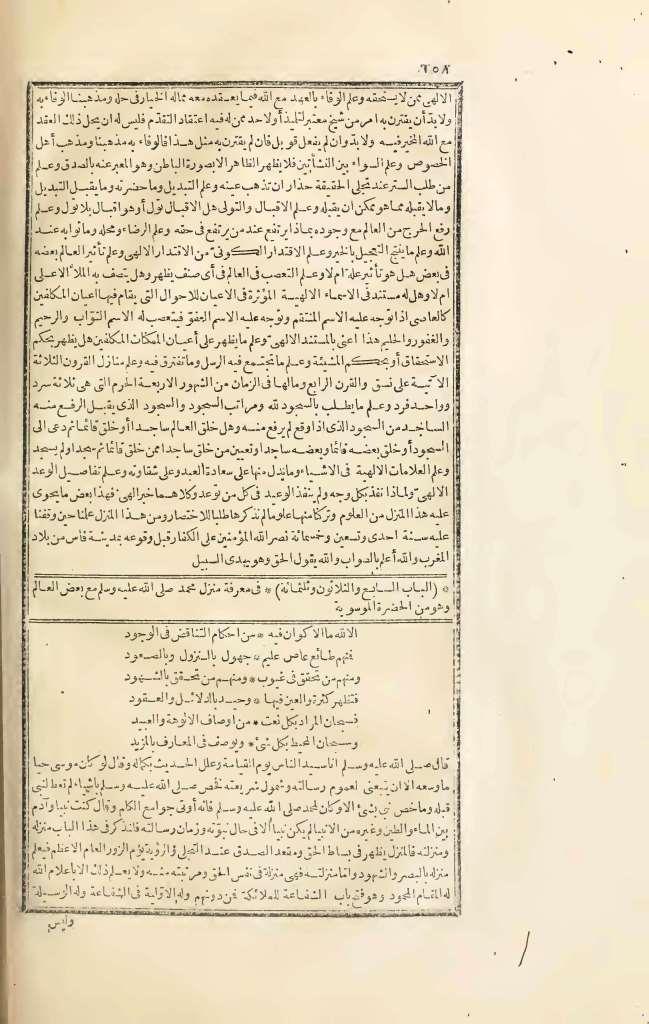 ٢٥٨
الالهي ممن لا يستحقه وعلم الوفاء بالعهد مع الله فيما يعقده معه مما له الخيار في حله ومذهبنا الوفاء به
ولا بد أن يقترن به امر من شيخ معتبر لتلميذ أو لاحد ممن له فيه اعتقاد التقدم فليس له ان يحل ذلك العقد
مع الله المخير فيه ولا بد وان لم يفعل قوبل فان لم يقترن به مثل هذا فالوفاء به مذهبنا ومذهب أهل
الخصوص وعلم السواء بين النشأتين فلا يظهر الظاهر الا بصورة الباطن وهو المعبر عنه بالصدق وعلم
من طلب الستر عند تجلي الحقيقة حذار ان تذهب عينه وعلم التبديل وما حضرته وما يقبل التبديل
وما لا يقبله مما هو ممكن ان يقبله وعلم الاقبال والتولي هل الاقبال تول أو هو اقبال بلا تول وعلم
رفع الحرج من العالم مع وجوده بماذا يرتفع عند من يرتفع في حقه وعلم الرضاء ومحله وما ثوابه عند
الله وعلم ما ينتج التعجيل بالخير وعلم الاقتدار الكوني من الاقتدار الالهي وعلم تأثير العالم بعضه
في بعض هل هو تأثير علة ام لا وعلم التعصب في العالم في أي صنف يظهر وهل يتصف به الملأ الاعلى
ام لا وهل له مستند في الاسماء الالهية المؤثرة في الاعيان للاحوال التي يقام فيها اعيان المكلفين
كالعاصي اذا توجه عليه الاسم المنتقم وتوجه عليه الاسم العفو فيتعصب له الاسم التواب والرحيم
والغفور والحليم هذا اعني بالمستند الالهي وعلم ما يظهر على أعيان الممكنات المكلفين هل يظهر بحكم
الاستحقاق أو بحكم المشيئة وعلم ما تجتمع فيه الرسل وما تفترق فيه وعلم منازل القرون الثلاثة
الآتية على نسق والقرن الرابع وما لها في الزمان من الشهور الاربعة الحرم التي هي ثلاثة سرد
وواحد فرد وعلم ما يطلب بالسجود لله ومراتب السجود والسجود الذي يقبل الرفع منه
الساجد من السجود الذي اذا وقع لم يرفع منه وهل خلق العالم ساجدا أو خلق قائما ثم دعى الى
السجود أو خلق بعضه قائما وبعضه ساجدا وتعيين من خلق ساجدا ممن خلق قائما ثم سجد او لم يسجد
وعلم العلامات الالهية في الاشياء وما يدل منها على سعادة العبد وعلى شقاوته وعلم تفاصيل الوعد
الالهي ولماذا نفذ بكل وجه ولم ينفذ الوعيد في كل من توعد وكلاهما خبر الهي فهذا بعض ما يحوي
عليه هذا المنزل من العلوم وتركنا منها علوما لم نذكرها طلبا للاختصار ومن هذا المنزل علمنا حين وقفنا
عليه سنة احدى وتسعين وخمسمائة نصر الله المؤمنين على الكفار قبل وقوعه بمدينة فاس من بلاد
المغرب والله أعلم بالصواب والله يقول الحق وهو يهدي السبيل
* (الباب السابع والثلاثون وثلثمائة) * في معرفة منزل محمد صلى الله عليه وسلم مع بعض العالم
وهو من الحضرة الموسوية
الا لله ما الاكوان فيه * من احكام التناقض في الوجود
فمنهم طائع عاص عليم * جهول بالنزول وبالصعود
ومنهم من تحقق في غيوب * ومنهم من تحقق بالشهود
فتظهر كثرة والعين فيها * وحيد بالدلائل والعقود
فسبحان المراد بكل نعت * من اوصاف الالوهة والعبيد
وسبحان المحيط بكل شئ * ويوصف في المعارف بالمزيد
قال صلى الله عليه وسلم انا سيد الناس يوم القيامة وعلل الحديث بكماله وقال لو كان موسى حيا
ما وسعه الا ان يتبعني لعموم رسالته وشمول شريعته فخص صلى الله عليه وسلم باشياء لم تعط لنبي
قبله وما خص نبي بشئ الا وكان لمحمد صلى الله عليه وسلم فانه أوتي جوامع الكلم وقال كنت نبيا وآدم
بين الماء والطين وغيره من الانبياء لم يكن نبيا الا في حال نبوته وزمان رسالته فلنذكر في هذا الباب منزله
ومنزلته فالمنزل يظهر في بساط الحق ومقعد الصدق عند التجلي والرؤية يوم الزور العام الاعظم فيعلم
منزله بالبصر والشهود واما منزلته فهي منزلة في نفس الحق ومرتبته منه ولا يعلم ذلك الا باعلام الله
له المقام المحمود وهو فتح باب الشفاعة للملائكة فمن دونهم وله الاولية في الشفاعة وله الوسيلة
وليس